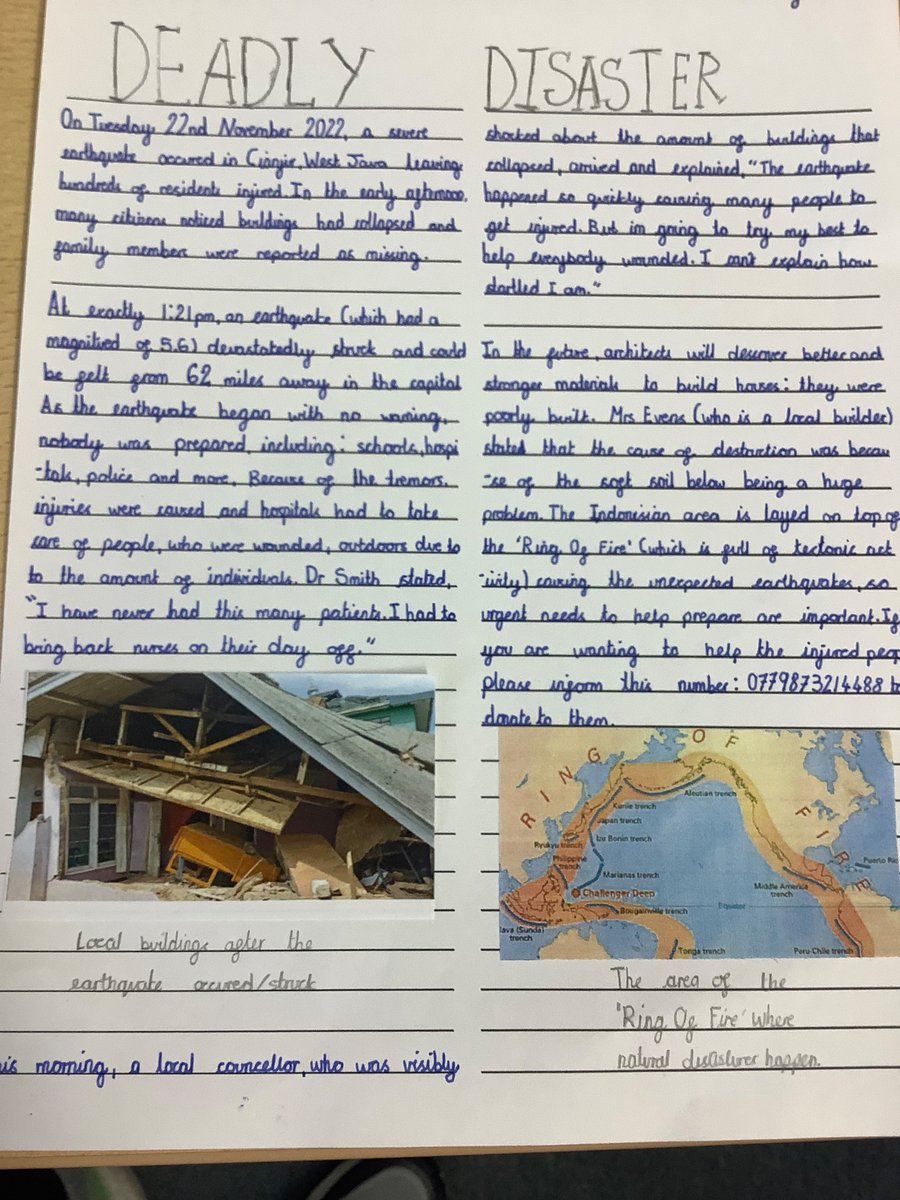 DEADLY DISASTER
On Tuesday 22nd November 2022, a severe
earthquake occured in Cianjur, West Java leaving
hundreds of residents injured. In the early afternoon,
many citizens noticed buildings had collapsed and
family members were reported as missing.
At exactly 1:21pm, an earthquake (which had a
magnitued of 5.6) devastatedly struck and could
be felt from 62 miles away in the capital
As the earthquake began with no warning,
nobody was prepared, including: schools, hospi
-tals, police and more. Because of the tremors.
injuries were caused and hospitals had to take
care of people, who were wounded, outdoors due to
to the amount of individuals. Dr Smith stated,
"I have never had this many patients. I had to
bring back nurses on their day off."
Local buildings after the
earthquake occured/struck
is morning, a local councellor, who was visibly
shocked about the amount of buildings that
collapsed, arrived and explained, "The earthquake
happened so quickly causing many people to
get injured. But im going to try my best to
help everybody wounded. I can't explain how
startled I am."
In the future, architects will descover better and
stronger materials to build houses: they were
poorly built. Mrs Evens (who is a local builder)
stated that the cause of destruction was becau
-se of the soft soil below being a huge
problem. The Indonesian area is layed on top of
the 'Ring Of Fire' (which is full of tectonic act
-ivity) causing the unexpected earthquakes, so
urgent needs to help prepare are important. If
you are wanting to help the injured peop
please inform this number: 0779873214488 to
donate to them.
RING OF FIRE
Aleutian trench
Kurile trench
Japan trench
Izu Bonin trench
Ryukyu trench
Philippine
trench
Marianas trench
Challenger Deep
Bougainville trench
Java (Sunda)
trench
Tonga trench
Equator
Middle America
trench
Puerto Ric
Peru-Chile trench
The area of the
'Ring Of Fire' where
natural disasturer happen.